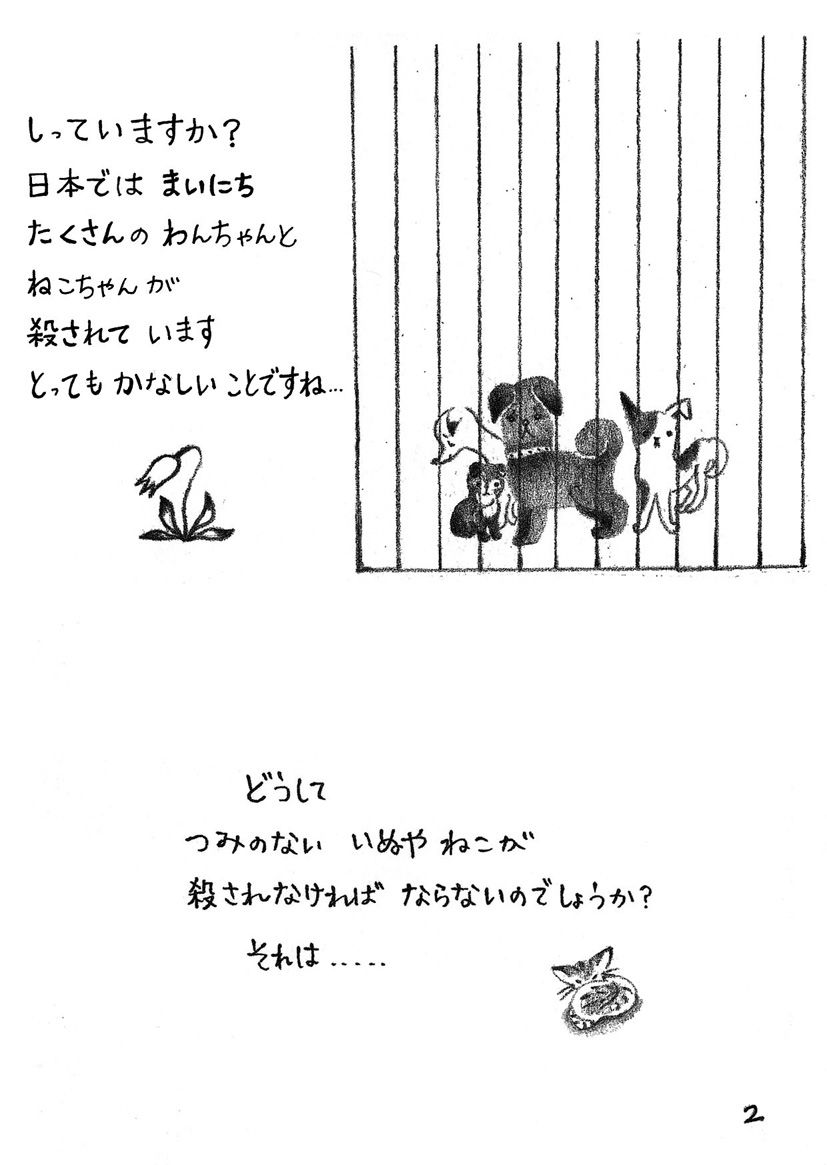 しっていますか？
日本では まいにち
たくさんの わんちゃんと
ねこちゃん が
殺されて います
とっても かなしい ことですね…
どうして
つみのない いぬや ねこが
殺されなければ ならないのでしょうか？
それは.....
2